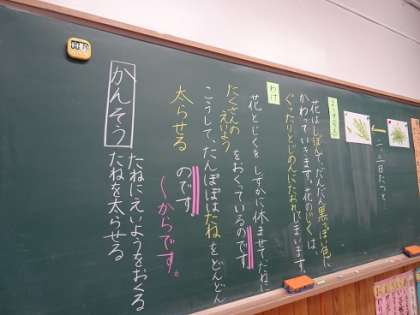 二、三日たつと、
花はしぼんで、だんだん黒っぽい色に
かわっていきます。花のじくは、
ぐったりとじめんにたおれてしまいます。
わけ
花とじくをしずかに休ませて、たねに
たくさんの
えいよう
をおくっているのです
こうして、たんぽぽは、たねをどんどん
太らせる
のです
〜からです。
かんそう
たねにえいようをおくる
たねを太らせる